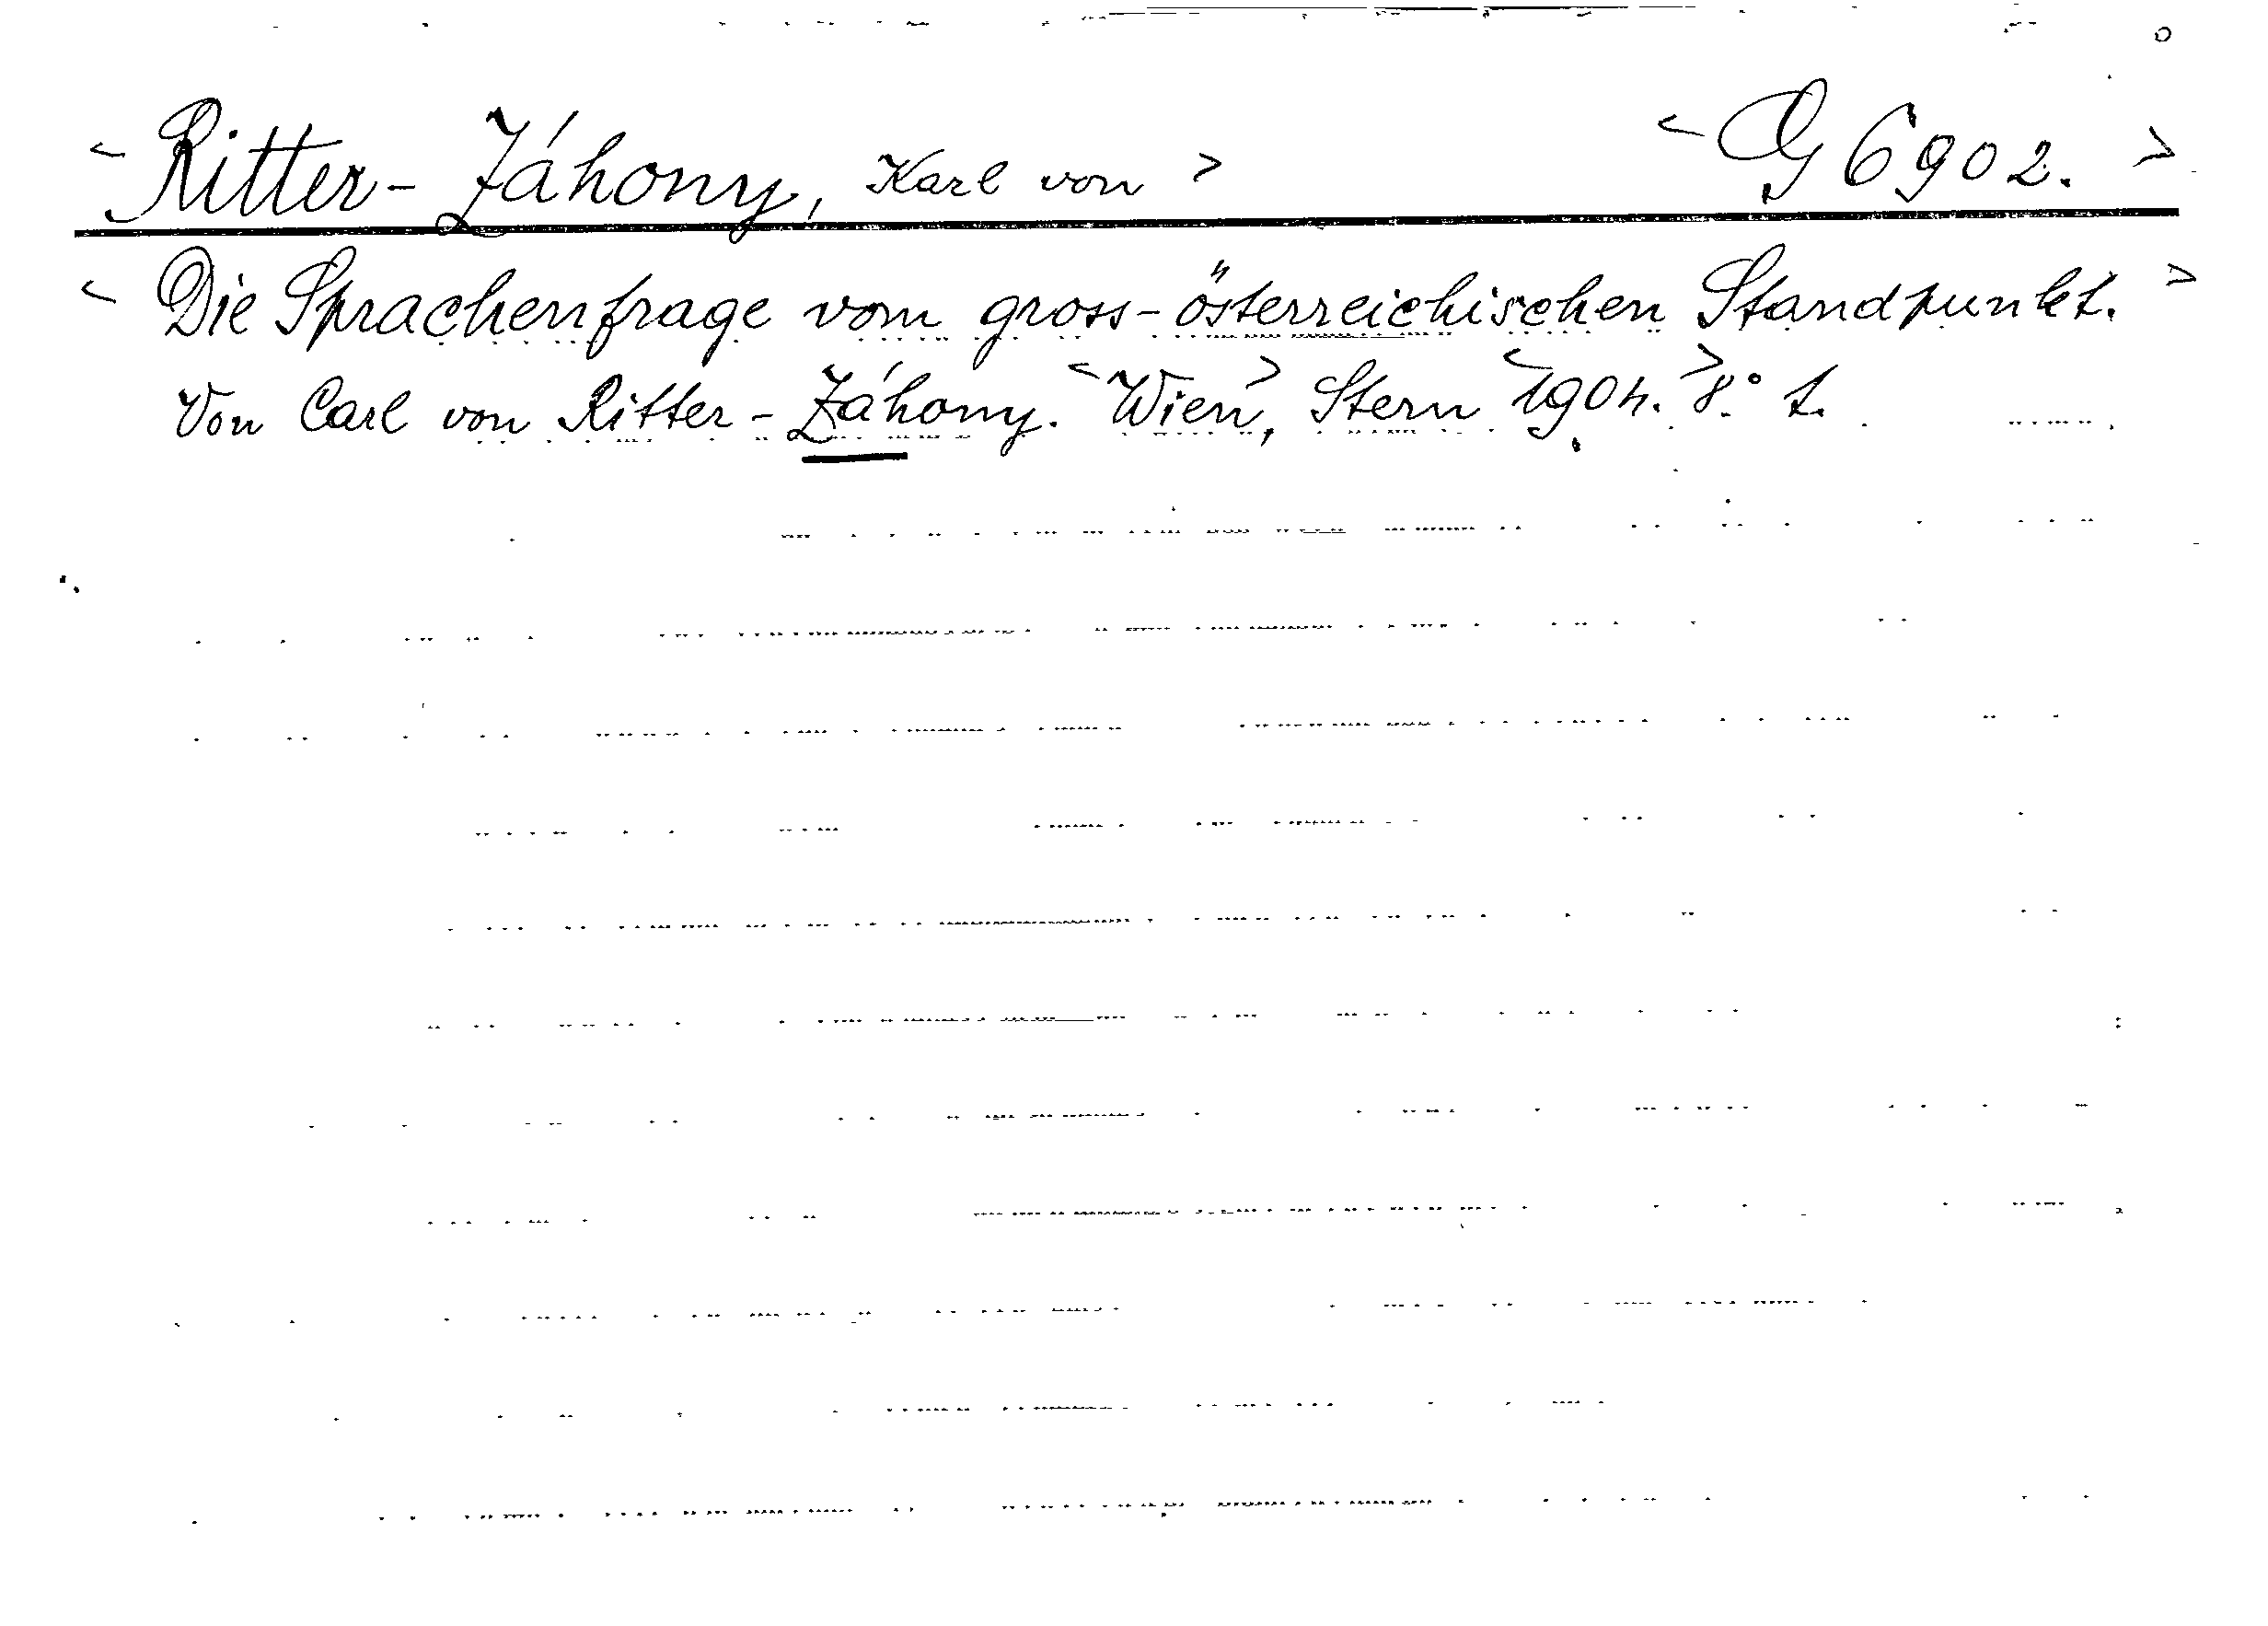 < Ritter-Záhony, Karl von > < G 6902. >
< Die Sprachenfrage vom gross-österreichischen Standpunkt. >
Von Carl von Ritter-Záhony. <Wien>, Stern <1904.> 8.° 1.